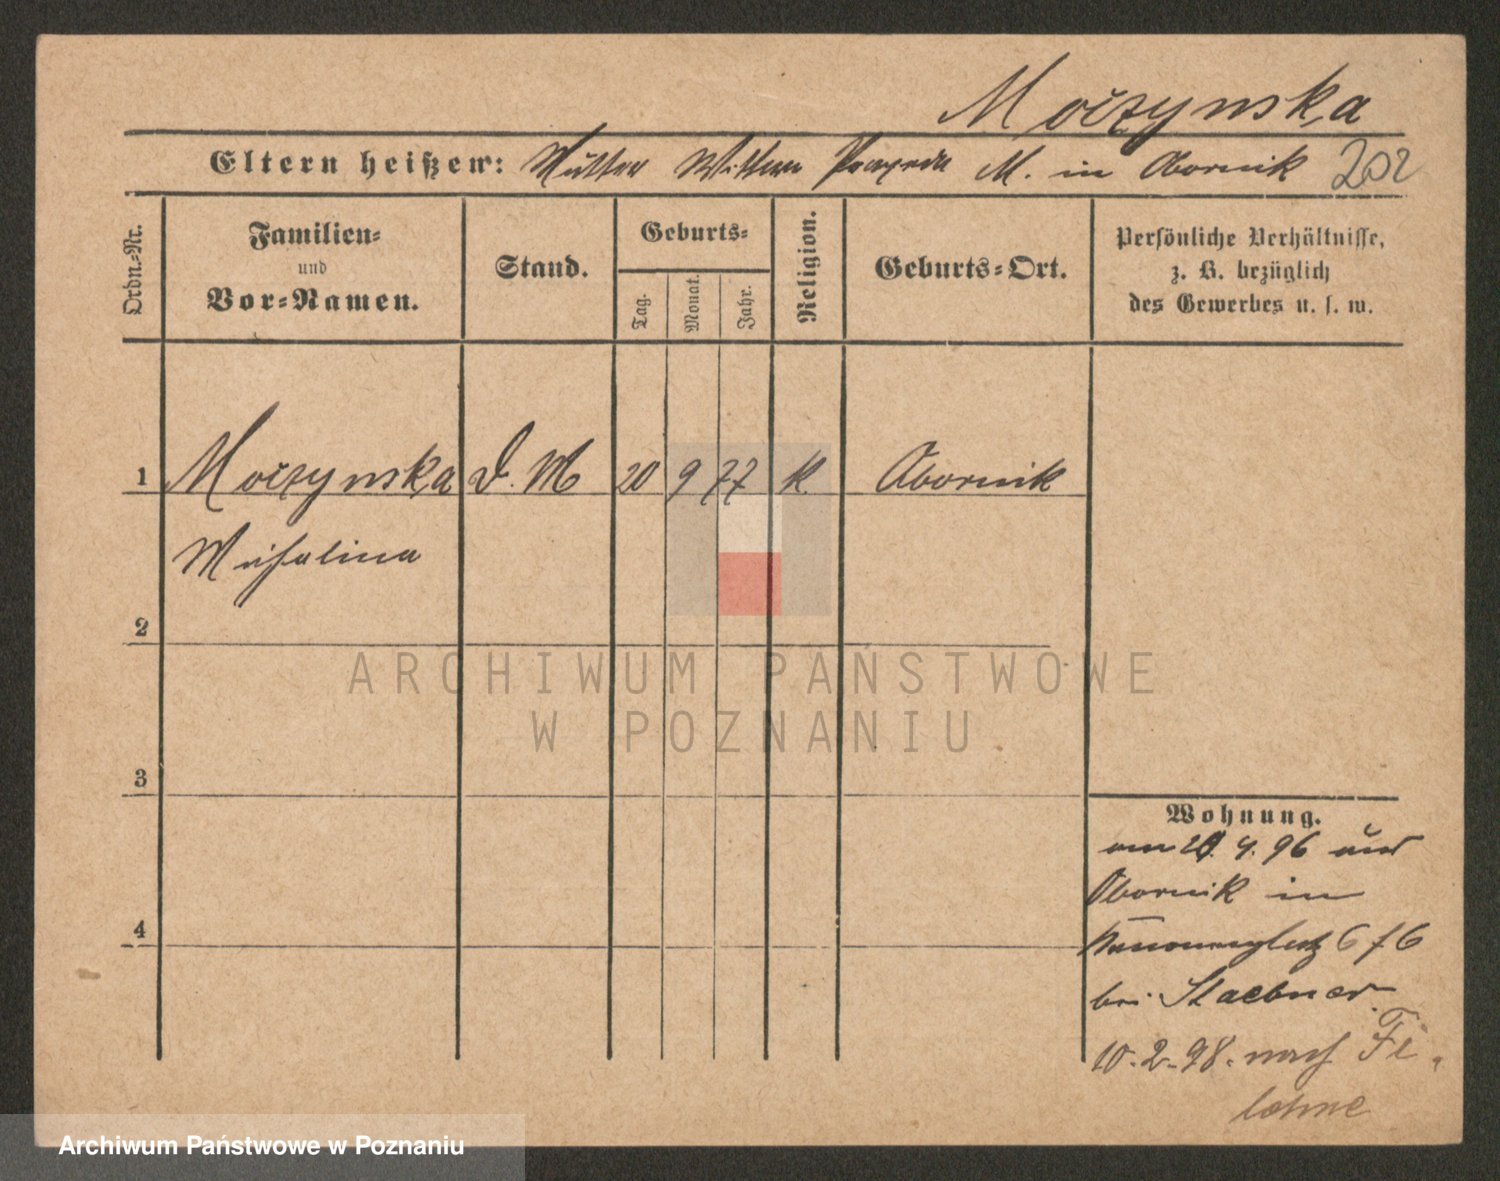 Moczynska
Eltern heißen: Mutter Wittwe Praxeda M. in Obornik 202
Ordn.-Nr.
Familien-
und
Vor-Namen.
Stand.
Geburts-
Tag.
Monat.
Jahr.
Religion.
Geburts-Ort.
Persönliche Verhältnisse,
z. B. bezüglich
des Gewerbes u. s. w.
1 Moczynska D. M 20 9 77 k. Obornik
Michalina
2
3
4
Wohnung.
am 20. 4. 96 aus
Obornik in
Kanonenplatz 6 / 6
bei Staebner
10.-2-98. nach Fi-
lehne
ARCHIWUM PAŃSTWOWE
W POZNANIU
Archiwum Państwowe w Poznaniu